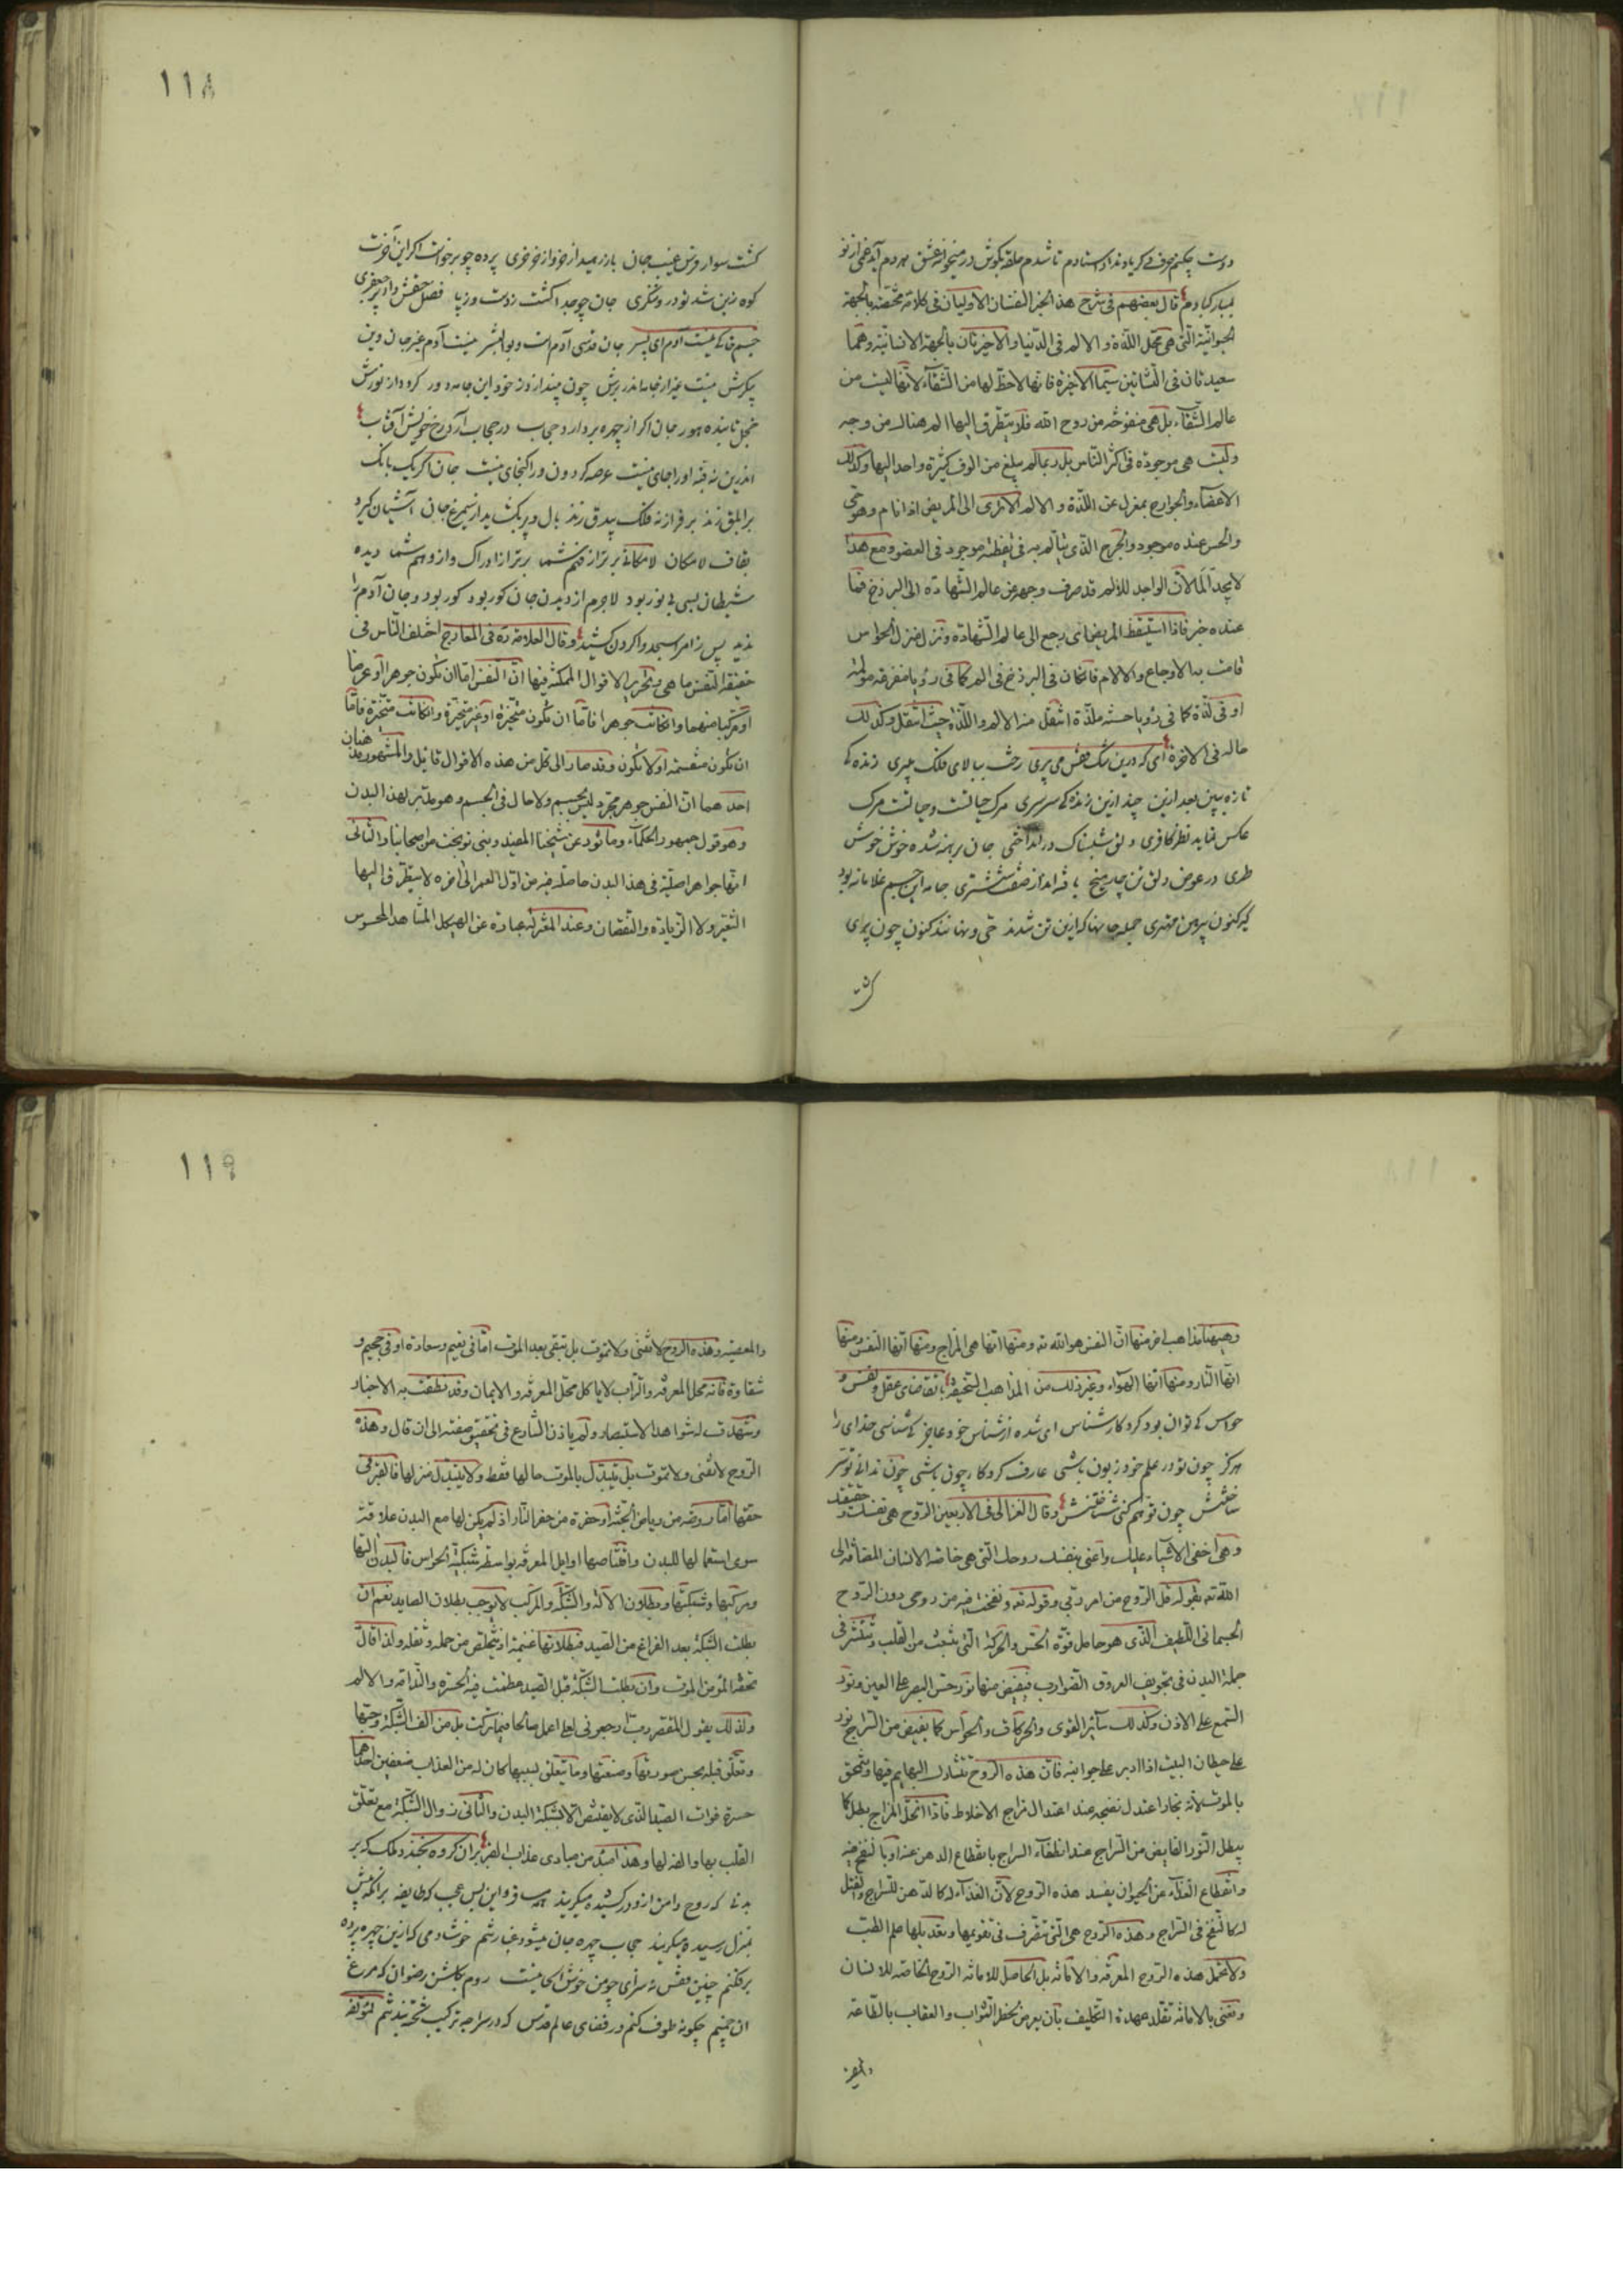 دوست چکنم حرف دگر یاد نداد استادم تا شدم حلقه بگوش در میخانه عشق هر دم آید غمی از نو
بمبارکبادم قال بعضهم فی شرح هذا الخبر النفسان الاولیان فی کلامه مختصه بالجهة
الحیوانیة التی هی محل اللذة و الالم فی الدنیا و الاخیرتان بالجهة الانسانیة و هما
سعیدتان فی النشأتین سیما الاخیرة فانها لاحظ لها من الشقاء لانها لیست من
عالم الشقاء بل هی منفوخة من روح الله فلا یتطرق الیها الم هناک من وجه
ولیست هی موجودة فی اکثر الناس بل ربما لم یبلغ من الوف کثیرة واحد الیها وکذلک
الاعضاء والجوارح بمعزل عن اللذة و الالم الا تری الی المریض اذا نام و هو حی
والحس عنده موجود والجرح الذی یتألم به فی یقظته موجود فی العضو ومع هذا
لا یجد ألما لان الواجد للالم قد صرف وجهه عن عالم الشهادة الی البرزخ فما
عنده خبر فاذا استیقظ المریض ای رجع الی عالم الشهادة ونزل منزل الحواس
قامت به الاوجاع والالام فان کان فی البرزخ فی الم کما فی رؤیا مفزعة مولمة
او فی لذة کما فی رؤیا حسنة ملذة انتقل منه الالم واللذة حیث انتقل وکذلک
حاله فی الاخرة ای که درین تنگ قفس می پری رخت ببالای فلک میبری زنده
تازه ببین بعد ازین چند ازین زندگی سرسری مرگ حیاتست وحیاتست مرگ
عکس نماید نظر کافری دلق تن جان برهنه شده خوش خوش
طری در عوض دلق تن چار میخ بافته اند از صفت ششتری جامه این جسم غلامانه بود
گیر کنون پیرهن مهتری جمله جانها که ازین تن شدند حی ونهانند کنون چون پری
۱۱۸
گشت سوار فرس غیب جان باز رهید از خر و از خرخری پرده چو برخواست اگر این آخرت
کوه زرین شد تو درو ننگری جان چو جدا گشت ز دست و ز پا فضل حقش داد پر جعفری
جسم خاکی نیست آدم ای پسر جان قدسی آدم است و بوالبشر نیست آدم غیر جان وین
پیکرش نیست غیر از جامه اندر برش چون بیندازد ز خود این جامه دور گردد از نورش
خجل تابنده هور جان اگر از چهره بردارد حجاب در حجاب آرد رخ خویش آفتاب
اندرین نه قبه او را جای نیست عرصه گردون ورا گنجای نیست جان اگر یک بانگ
بر ابلق زند بر فراز نه فلک بیدق زند بال و پر بگشاید ار سیمرغ جان آشیان گیرد
بقاف لامکان لامکانی برتر از فهم شما برتر از ادراک و از وهم شما دیده
شیطان بسی بی نور بود لاجرم از دیدن جان کور بود کور بود و جان آدم را
ندید پس ز امر اسجدوا گردن کشید وقال العلامة ره فی المعارج اختلف الناس فی
حقیقة النفس ما هی وتحریر الاقوال الممکنة فیها ان النفس اما ان تکون جوهرا او عرضا
او مرکبا منهما وان کانت جوهرا فاما ان تکون متحیزة او غیر متحیزة وان کانت متحیزة فاما
ان تکون منقسمة اولا تکون وقد صار الی کل من هذه الاقوال قایل والمشهور مذهبان
احدهما ان النفس جوهر مجرد لیس بجسم ولا حال فی الجسم وهو مدبر لهذا البدن
وهو قول جمهور الحکماء ومأثور عن شیخنا المفید وبنی نوبخت من اصحابنا والثانی
انها جواهر اصلیة فی هذا البدن حاصلة فیه من اول العمر الی اخره لا یتطرق الیها
التغیر ولا الزیادة والنقصان وعند المعتزلة عبارة عن الهیکل المشاهد المحسوس
وهیهنا مذاهب اخر منها ان النفس هو الله ته ومنها انها هی المزاج ومنها انها النفس ومنها
انها النار ومنها انها الهواء وغیر ذلک من المذاهب السخیفة با تقاضای عقل ونفس و
حواس کی توان بود کردگار شناس ای شده از شناس خود عاجز کی شناسی خدای را
هرگز چون تو در علم خود زبون باشی عارف کردگار چون باشی چون ندانی تو سر
ساختنش چون توهم کنی شناختنش وقال الغزالی فی الاربعین الروح هی نفسک وحقیقتک
وهی اخفی الاشیاء علیک واعنی بنفسک روحک التی هی خاصة الانسان المضافة الی
الله ته بقوله قل الروح من امر ربی وقوله ته ونفخت فیه من روحی دون الروح
الجسمانی اللطیف الذی هو حامل قوة الحس والحرکة التی تنبعث من القلب وتنتشر فی
جملة البدن فی تجویف العروق الضوارب فیفیض منها نور حس البصر علی العین ونور
السمع علی الاذن وکذلک سایر القوی والحرکات والحواس کما یفیض من السراج نور
علی حیطان البیت اذا ادیر علی جوانبه فان هذه الروح تتشارک البهایم فیها وتنمحق
بالموت لانه بخار اعتدل نضجه عند اعتدال مزاج الاخلاط فاذا انحل المزاج بطل کما
یبطل النور الفایض من السراج عند انطفاء السراج بانقطاع الدهن عنه او بالنفخ فیه
وانقطاع الغذاء عن الحیوان یفسد هذه الروح لان الغذاء له کالدهن للسراج والقتل
له کالنفخ فی السراج وهذه الروح هی التی یتصرف فی تقویمها وتعدیلها علم الطب
ولا تحمل هذه الروح المعرفة والامانة بل الحامل للامانة الروح الخاصة للانسان
ونعنی بالامانة تقلد عهدة التکلیف بان یعرض لخطر الثواب والعقاب بالطاعة
۱۱۹
والمعصیة وهذه الروح لا تفنی ولا تموت بل تبقی بعد الموت اما فی نعیم وسعادة او فی جحیم و
شقاوة فانه محل المعرفة والتراب لا یاکل محل المعرفة والایمان وقد نطقت به الاخبار
وشهدت له شواهد الاستبصار ولم یاذن الشارع فی تحقیق صفته الی ان قال وهذه
الروح لا تفنی ولا تموت بل یتبدل بالموت حالها فقط ولا یتبدل منزلها فالقبر فی
حقها اما روضة من ریاض الجنة او حفرة من حفر النار اذ لم یکن لها مع البدن علاقة
سوی استعمالها للبدن واقتناصها اوایل المعرفة بواسطة شبکة الحواس فالبدن آلتها
ومرکبها وشبکتها وبطلان الآلة والشبکة والمرکب لا یوجب بطلان الصاید نعم ان
بطلت الشبکة بعد الفراغ من الصید فبطلانها غنیمة اذ یتخلص من حمله وثقله ولذا قال
تحفة المؤمن الموت وان بطلت الشبکة قبل الصید عظمت فیه الحسرة والندامة والالم
ولذلک یقول المقصر رب ارجعونی لعلی اعمل صالحا فیما ترکت بل من الف الشبکة وحبها
وتعلق قلبه بحسن صورتها وصنعتها وما یتعلق بسببها کان له من العذاب ضعفین احدهما
حسرة فوات الصید الذی لا یقتنص الا بشبکة البدن والثانی زوال الشبکة مع تعلق
القلب بها والفه لها وهذا مبدء من مبادی عذاب القبر بران گروه بخندد فلک که بر
بدنی که روح دامن ازو درکشیده میگریند مسافر واین بس عجب که طایفه برانکه پیش
بمنزل رسیده میگریند حجاب چهره جان میشود غبار تنم خوشا دمی که ازین چهره پرده
برفکنم چنین قفس نه سزای چو من خوش الحانیست روم بگلشن رضوان که مرغ
آن چمنم چگونه طوف کنم در فضای عالم قدس که در سراچه ترکیب تخته بند تنم لمؤلفه